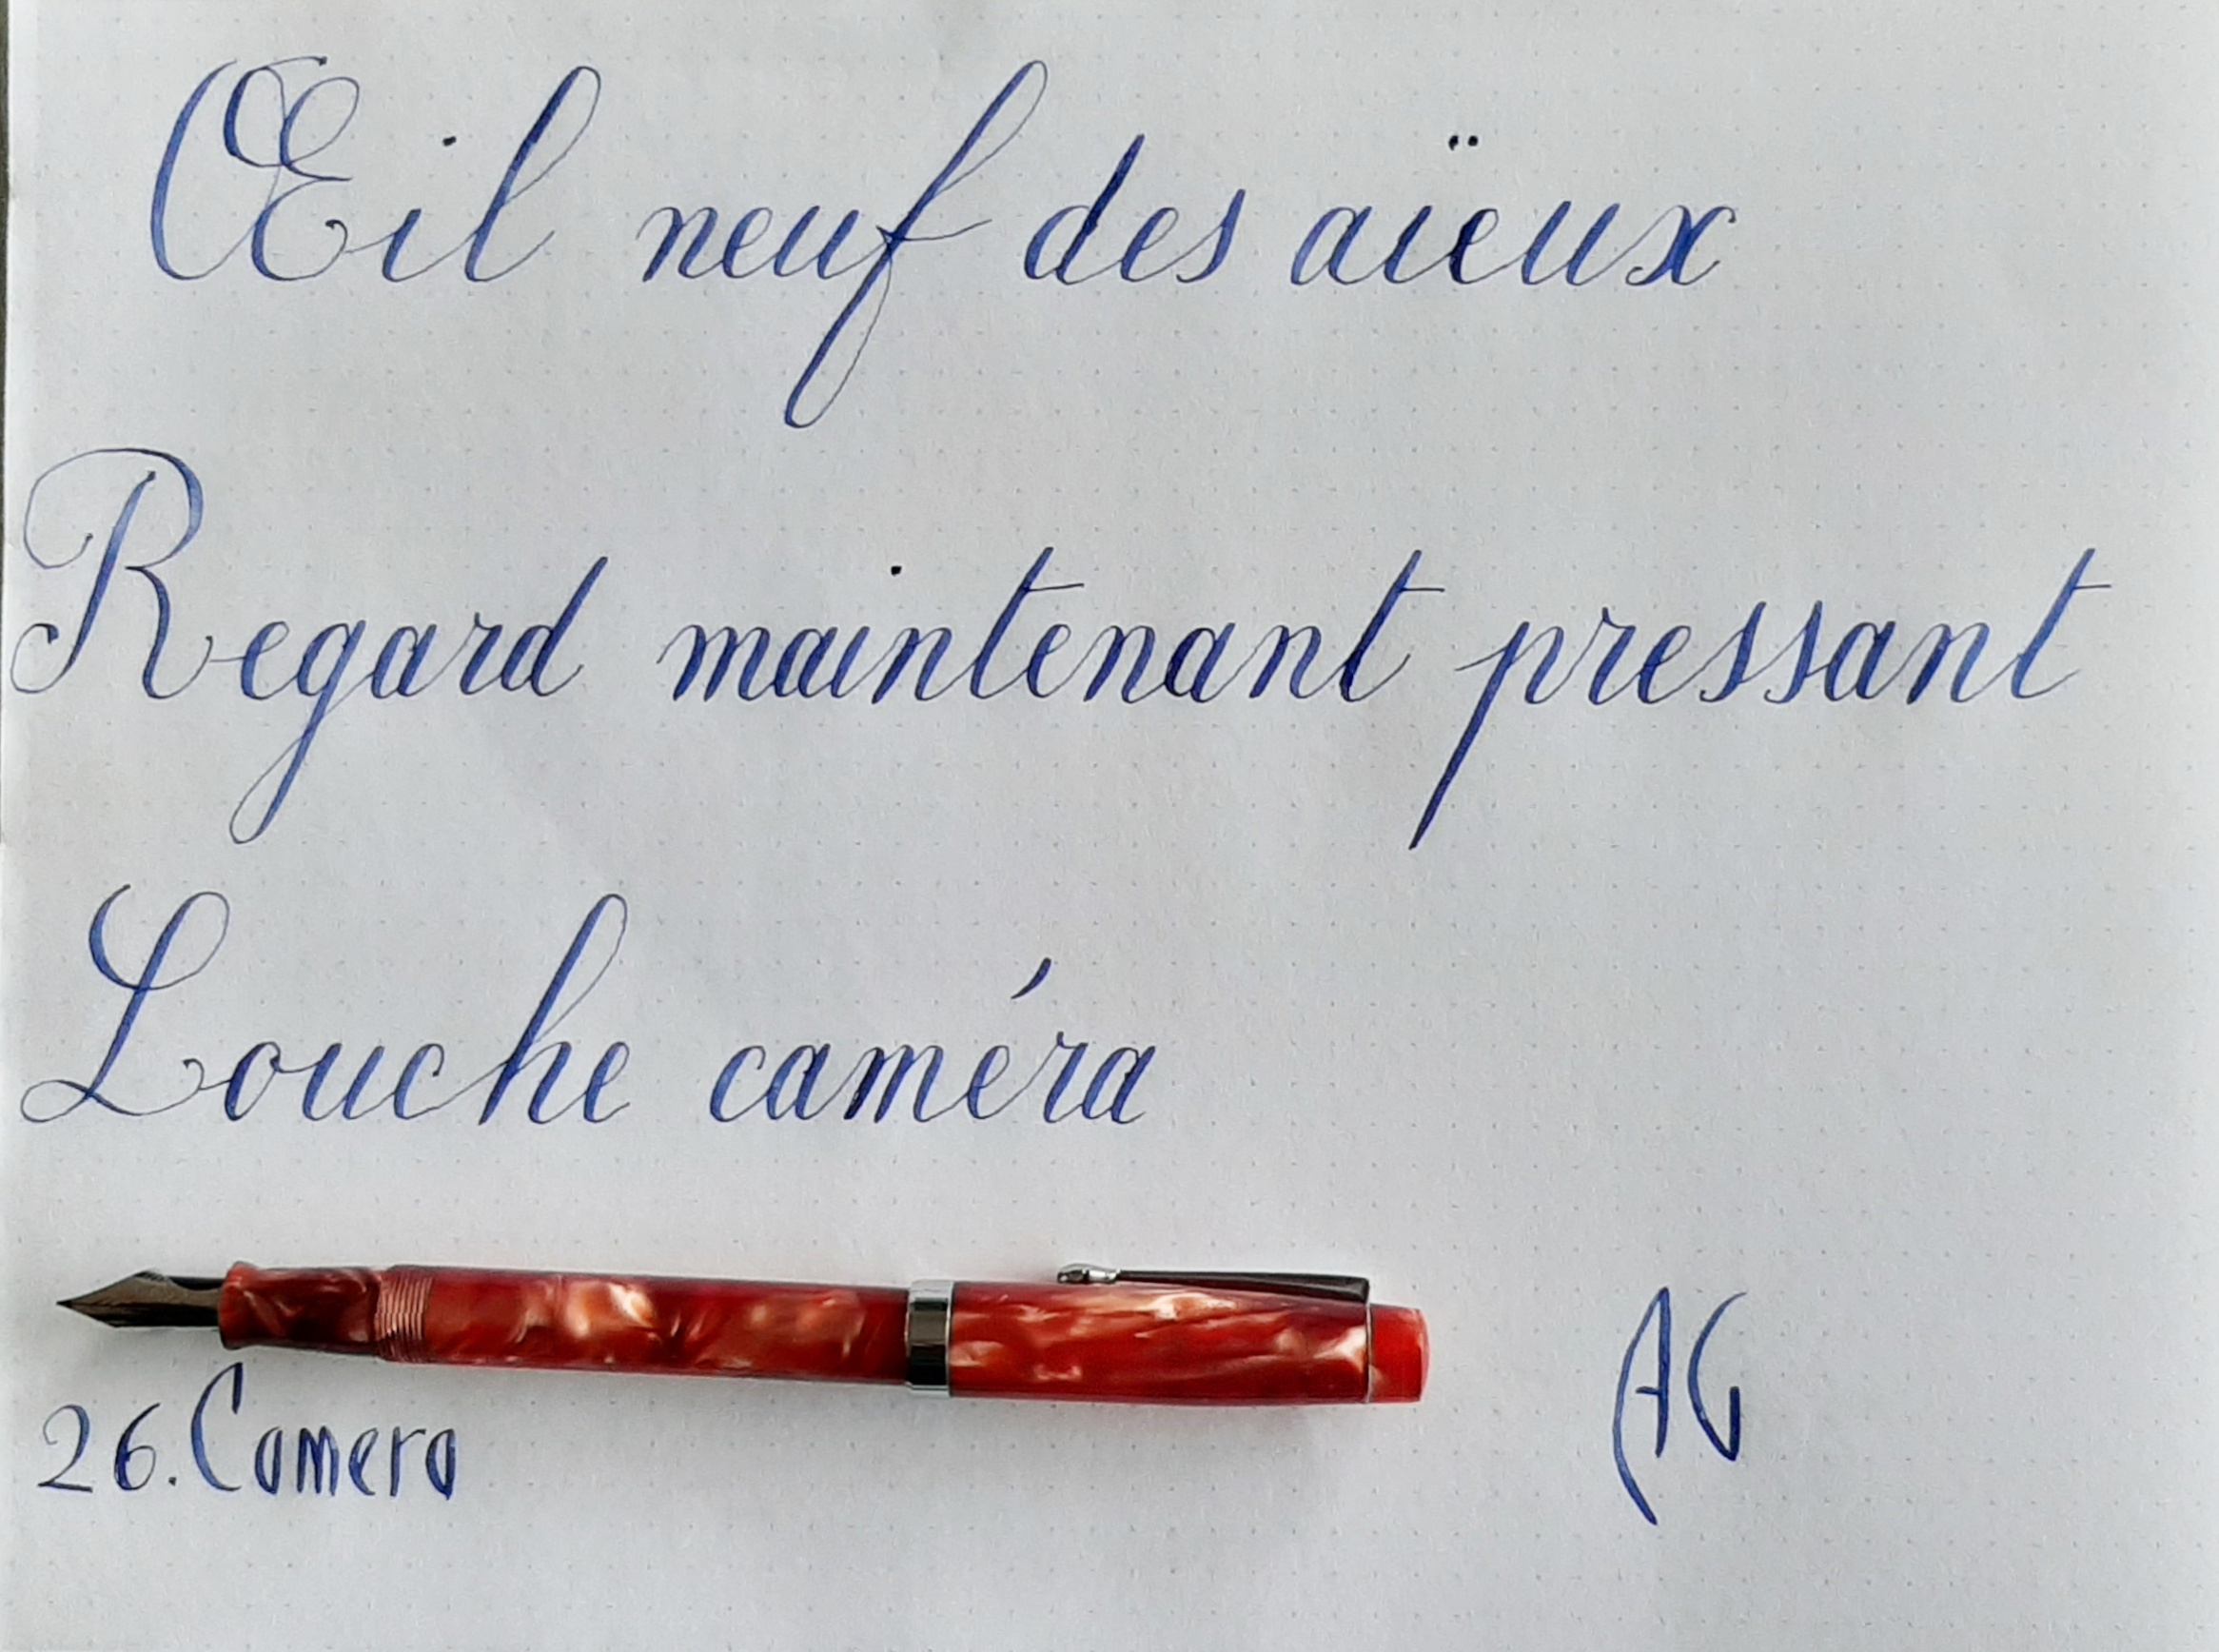 Œil neuf des aïeux
Regard maintenant pressant
Louche caméra
26. Camera
AG